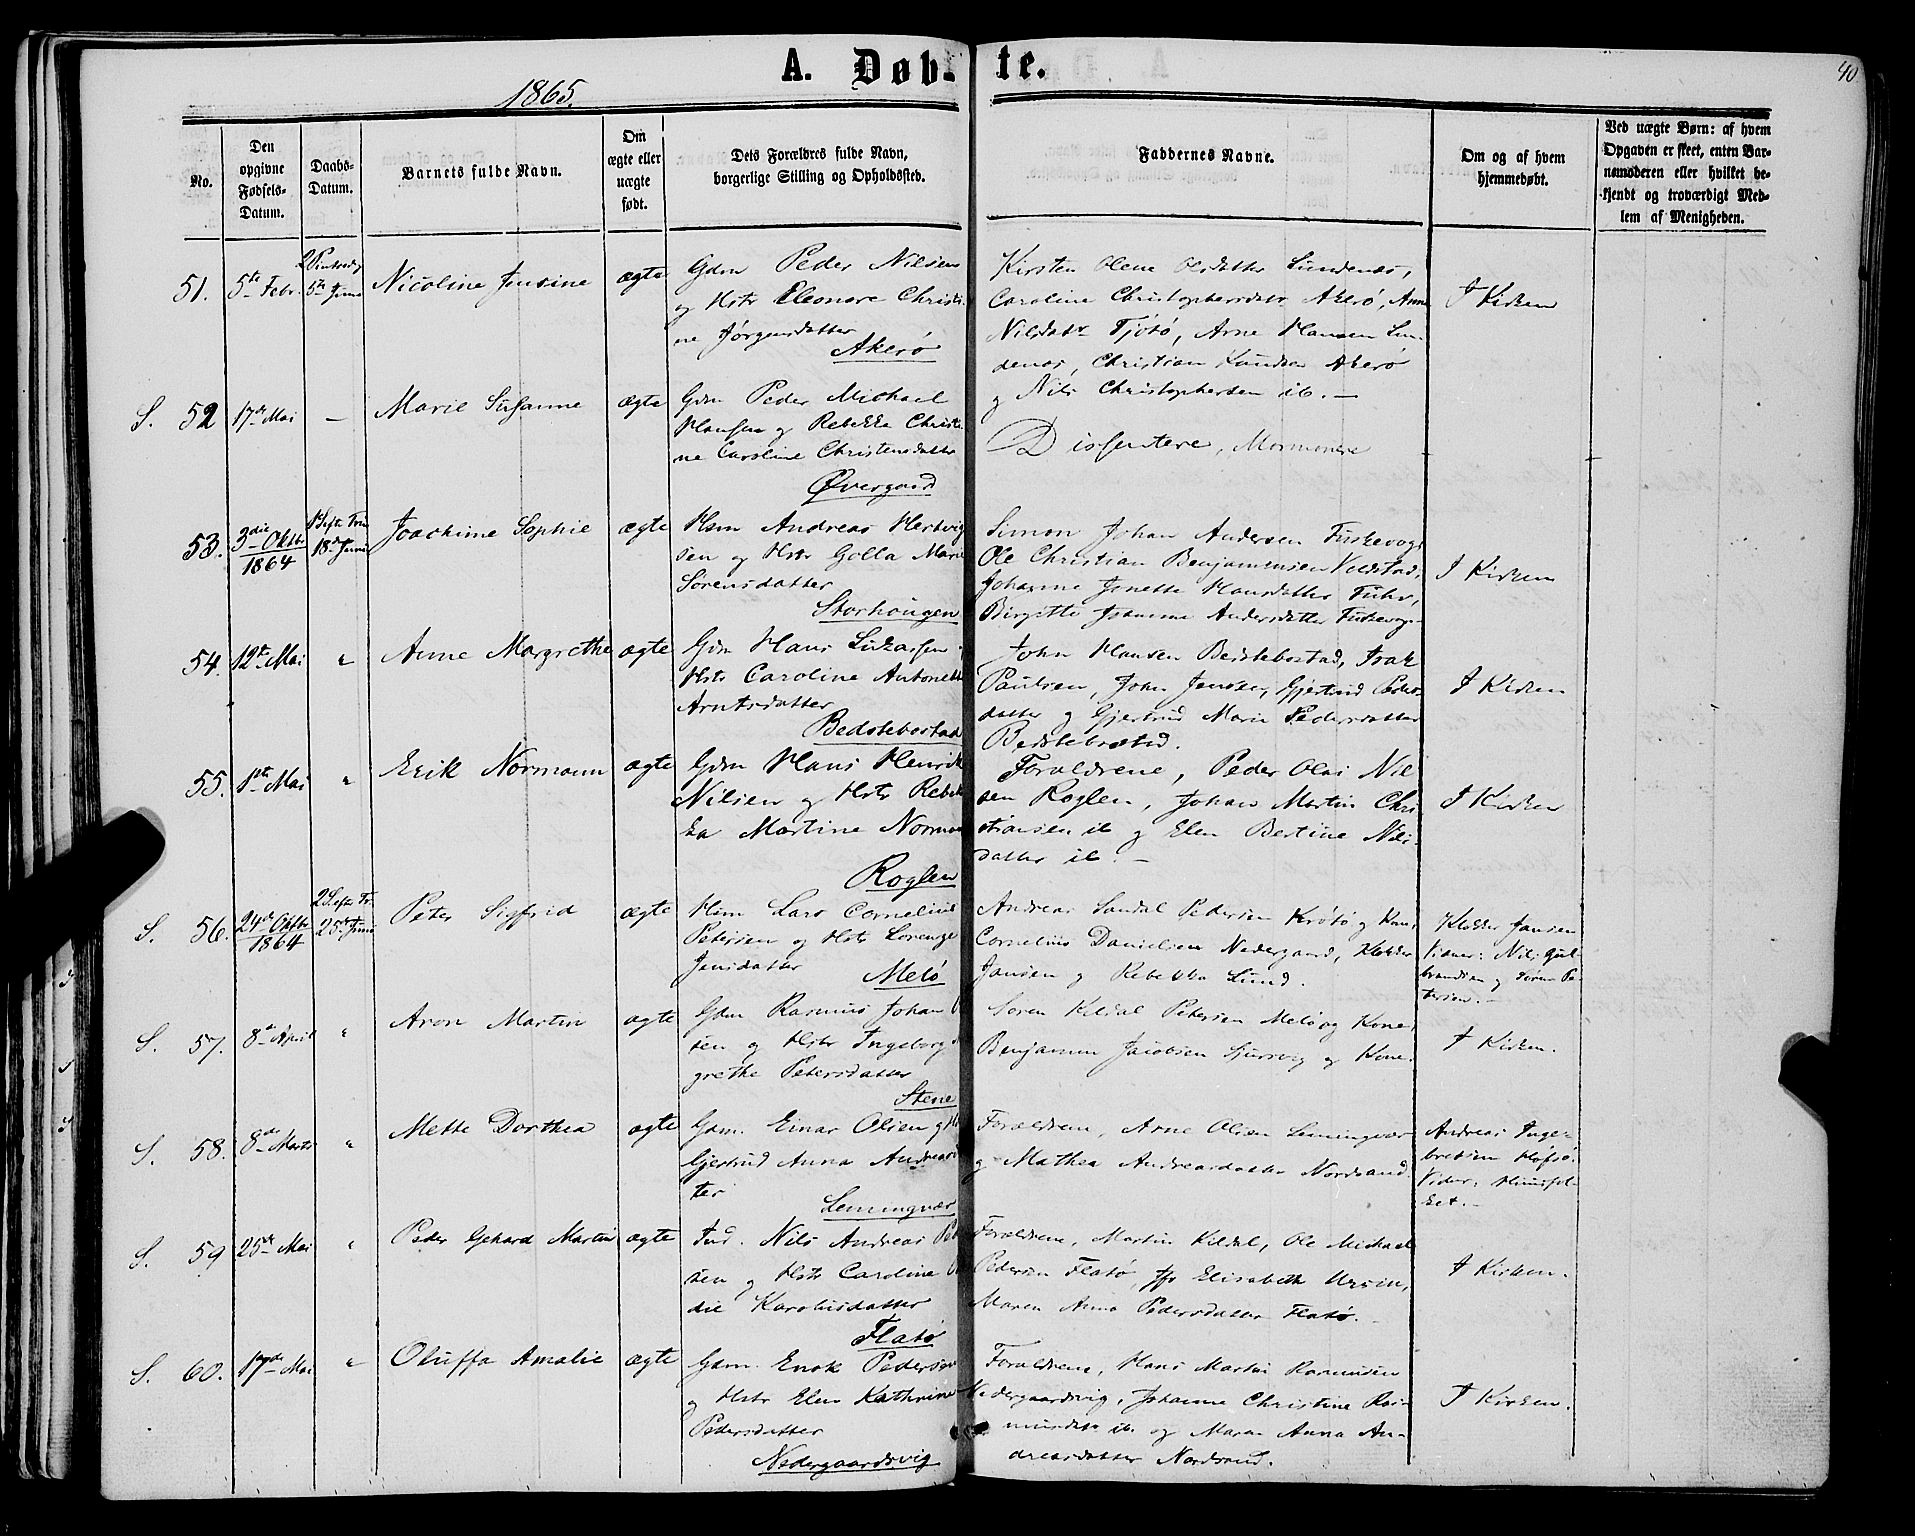 A. Døb- te.
40
1865.
No.
Den
opgivne
Fødsels-
Datum.
Daabs-
Datum.
Barnets fulde Navn.
Om
ægte eller
uægte
født.
Dets Forældres fulde Navn,
borgerlige Stilling og Opholdssted.
Faddernes Navne.
Om og af hvem
hjemmedøbt.
Ved uægte Børn: af hvem
Opgaven er skeet, enten Bar-
nemoderen eller hvilket be-
kjendt og troværdigt Med-
lem af Menigheden.
51. 5te Febr. 5te Juni Nicoline Jensine ægte
Gdm Peder Nilsen
og Hstr Eleonore Christi
ne Jørgensdatter
Akerø
Kirsten Olene Olsdatter Lundenes,
Caroline Christophersdatr Akerø, Anne
Nilsdatr Tjötö, Arne Hansen Lun-
denes, Christian Knudsen Akerø
og Nils Christophersen ib. —
I Kirken
S. 52 17de Mai — Marie Susanne ægte
Gdm Peder Michael
Hansen og Rebekka Christi
ne Caroline Christensdatter
Øvergaard
Dissentere, Mormonere
53. 3die Oktbr 1864 1 S. eft. Trin 18de Juni Joachime Sophie ægte
Hsm Andreas Hertvig
sen og Hstr Golla Marie
Sørensdatter
Storhougen
Simon Johan Andersen Fuskevog,
Ole Christian Benjaminsen
Johanne Jenette Hansdatter
Birgitte Johanne Andersdatter Fuskevog
I Kirken
54. 12te Mai " Anne Margrethe ægte
Gdm Hans Lukassen
Hstr Caroline Antonette
Arntsdatter
Bedstebostad
John Hansen Bedstebostad, Isak
Paulsen, John Jensen, Gjertrud Peders
datter og Gjertrud Marie Pedersdatter
Bedstebostad.
I Kirken
55. 1ste Mai " Erik Normann ægte
Gdm Hans Henrik
Nilsen og Hstr Rebek
ka Martine Norman
Roglen
Forældrene, Peder Olai Nil
sen Roglen, Johan Martin Chri
stiansen ib og Elen Bertine Nils-
datter ib. —
I Kirken
S. 56. 24de Oktbr 1864 2 S. efter Tr. 25de Juni Peter Sigfrid ægte
Hsm Lars Cornelius
Petersen og Hstr Lorense
Jensdatter
Melö
Andreas Sandal Pedersen Krötö og Kone,
Cornelius Danielsen Nedergaard, Klokker
Jansen og Rebekka Lund.
Klokker Jansen
Vidner: Nils Gul-
brandsen og Sören Pe-
tersen. —
S. 57. 8de April " Aron Martin ægte
Gdm Rasmus Johan
sen og Hstr Ingeborg
grethe Petersdatter
Stene
Sören Kildal Petersen Melö og Kone,
Benjamin Jacobsen Sjursvig og Kone.
I Kirken.
S. 58. 8de Marts " Mette Dorthea ægte
Gdm. Einar Olsen og
Gjertrud Anna Andreasd
ter
Lemingvær
Forældrene, Arne Olsen Lemingvær
og Mathea Andreasdatter Nordsand.
Andreas Inge-
bretsen Hofsö.
Vidner: Huusfol-
ket. —
S. 59 25de Mai " Peder Gehard Martin ægte
Ind. Nils Andreas Pet
sen og Hstr Caroline
die Karolusdatter
Flatö
Forældrene, Martin Kildal, Ole Michael
Pedersen Flatö, Jfr Elisabeth Ursin,
Maren Anna Pedersdatter Flatö.
I Kirken.
S. 60. 17de Mai " Oluffa Amalie ægte
Gdm. Enok Pedersen
og Hstr Elen Kathrine
Pedersdatter
Nedergaardsvig
Forældrene, Hans Martin Rasmussen
Nedergaardsvig, Johanne Christine Ras-
musdtr ib. og Maren Anna An-
dreasdatter Nordsand.
I Kirken.